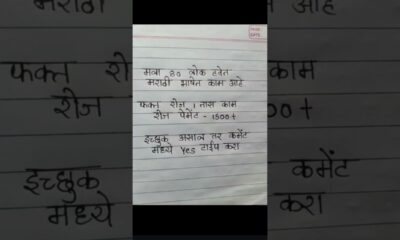 मला 80 लोक हवेत
मराठी भाषेत काम आहे
फक्त रोज 1 तास काम
रोज पेमेंट - 1500+
इच्छुक असाल तर कमेंट
मध्ये Yes टाईप करा